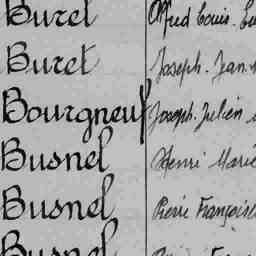 Burel Alfred Louis.
Buret Joseph. Jean.
Bourgneuf Joseph. Julien
Busnel Henri Marie
Busnel Pierre François
Busnel